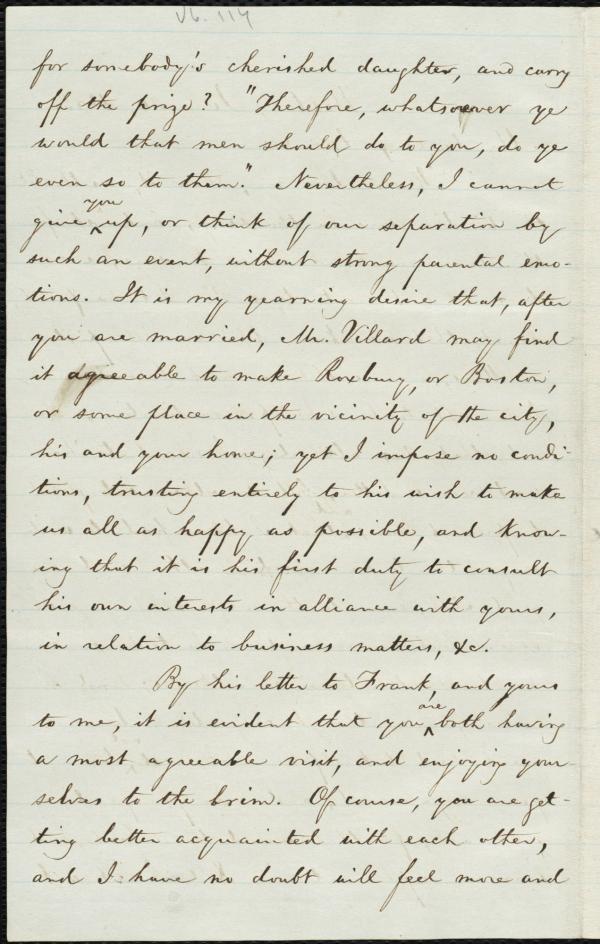 V6. 114
for somebody's cherished daughter, and carry
off the prize? "Therefore, whatsoever ye
would that men should do to you, do ye
even so to them." Nevertheless, I cannot
give you up, or think of our separation by
such an event, without strong parental emo-
tions. It is my yearning desire that, after
you are married, Mr. Villard may find
it agreeable to make Roxbury, or Boston,
or some place in the vicinity of the city,
his and your home; yet I impose no condi-
tions, trusting entirely to his wish to make
us all as happy as possible, and know-
ing that it is his first duty to consult
his own interests in alliance with yours,
in relation to business matters, &c.
By his letter to Frank, and yours
to me, it is evident that you are both having
a most agreeable visit, and enjoying your-
selves to the brim. Of course, you are get-
ting better acquainted with each other,
and I have no doubt will feel more and